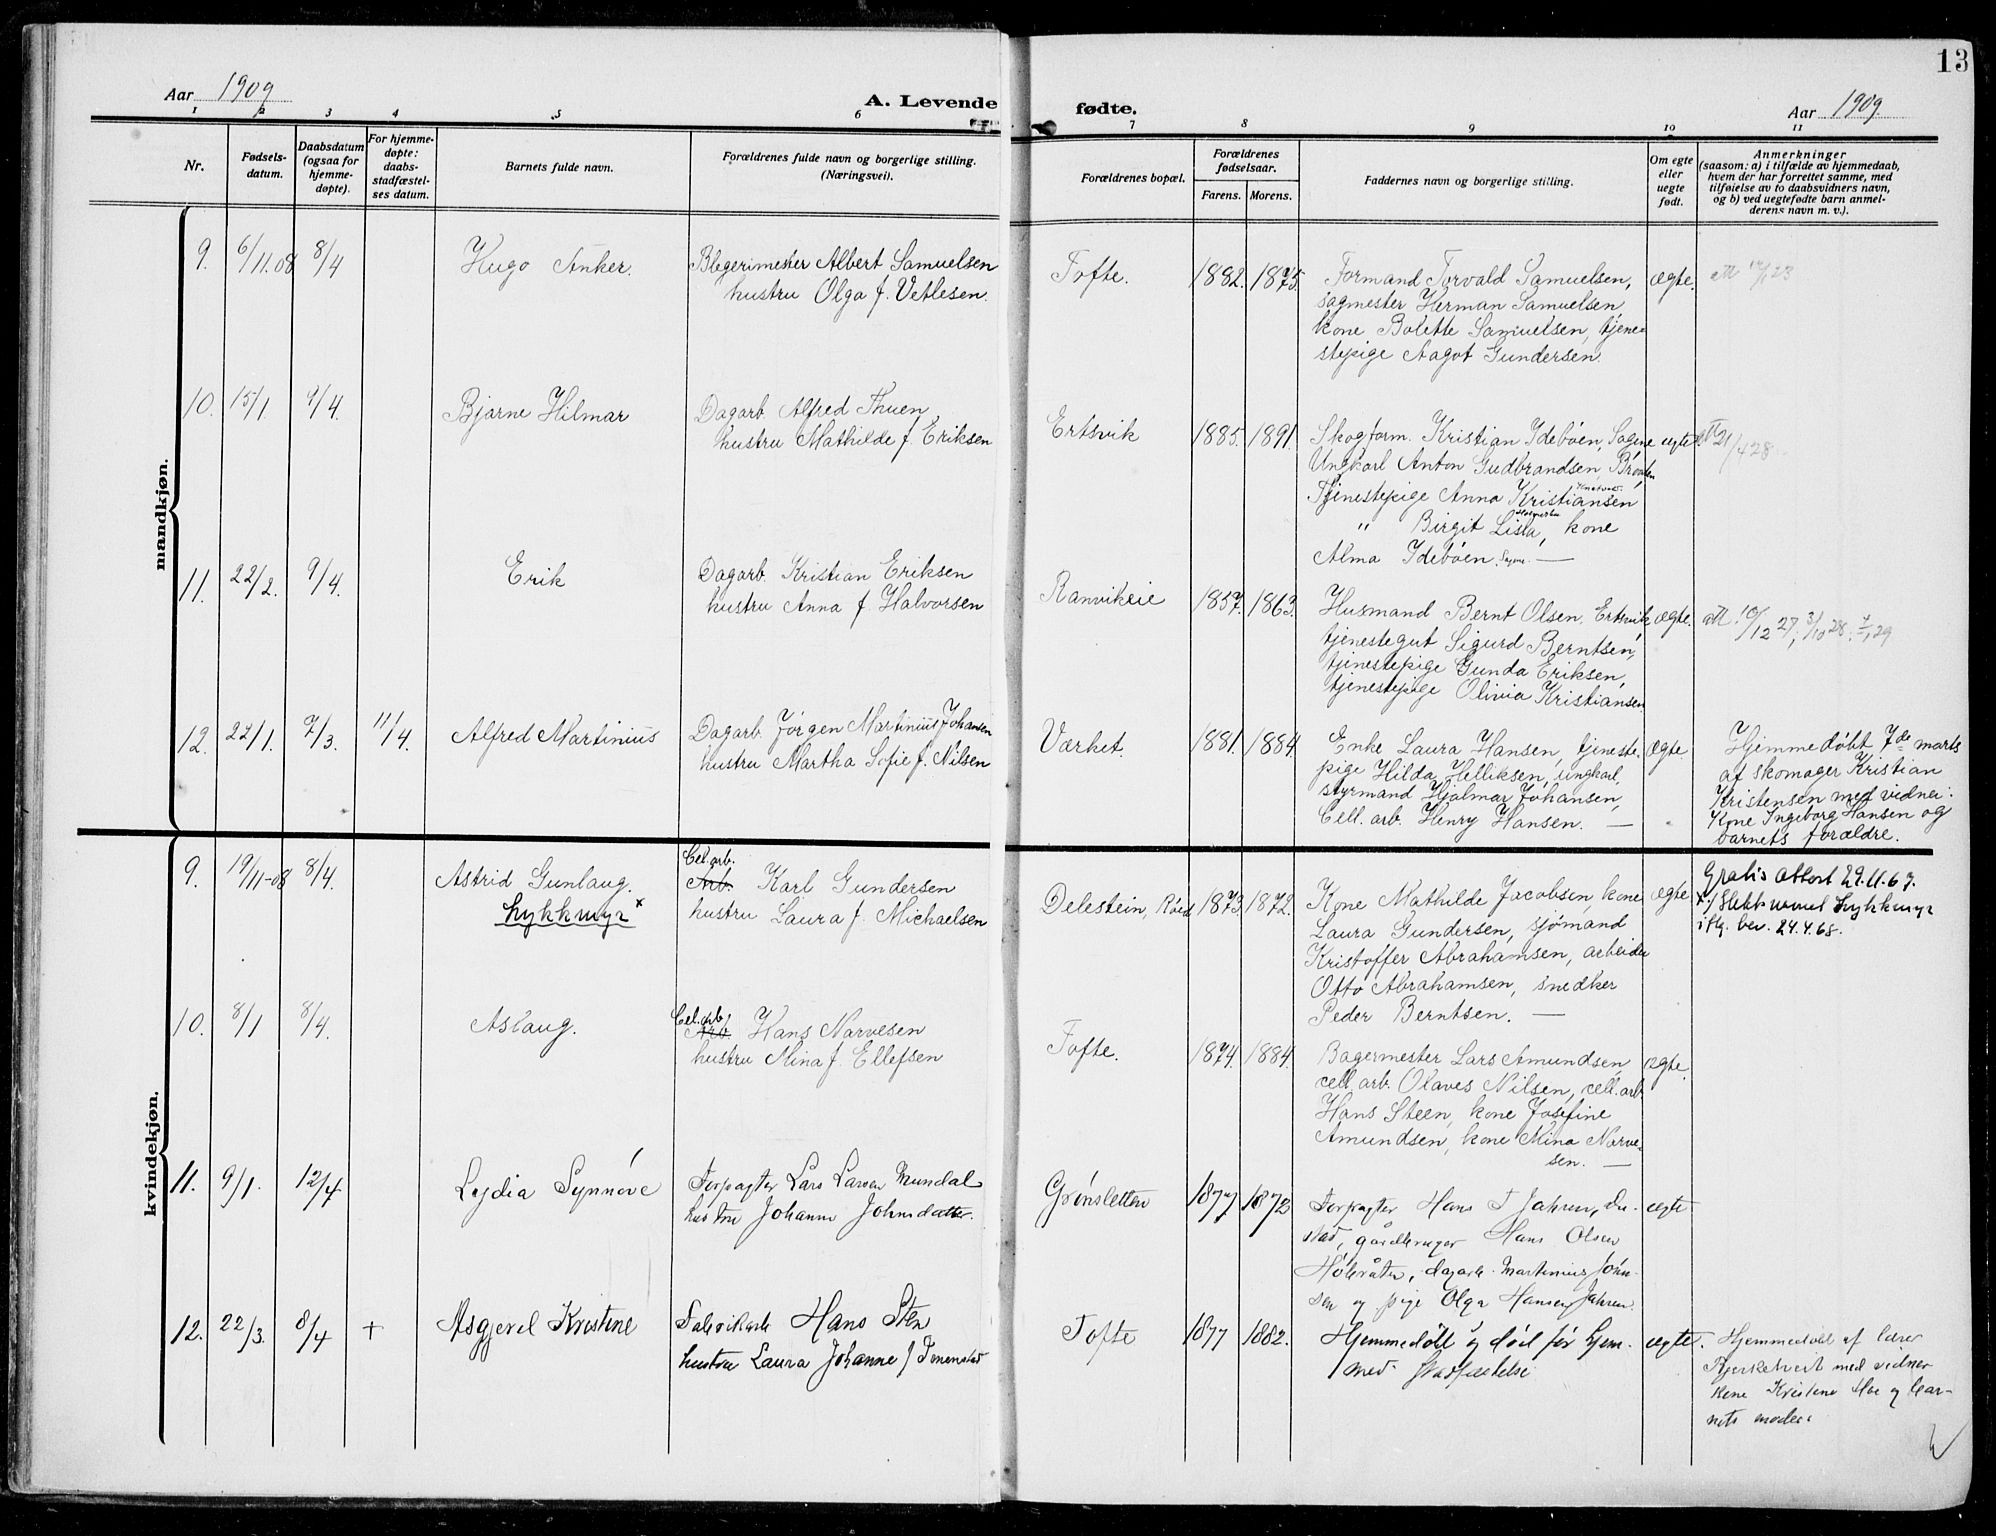 13
Aar 1909
A. Levende fødte.
Aar 1909.
1 2 3 4 5 6 7 8 9 10 11
Nr.
Fødsels-
datum.
Daabsdatum
(ogsaa for
hjemme-
døpte).
For hjemme-
døpte:
daabs-
stadfæstel-
ses datum.
Barnets fulde navn.
Forældrenes fulde navn og borgerlige stilling.
(Næringsvei).
Forældrenes bopæl.
Forældrenes
fødselsaar.
Farens. Morens.
Faddernes navn og borgerlige stilling.
Om egte
eller
uegte
født.
Anmerkninger
(saasom: a) i tilfælde av hjemmedaab,
hvem der har forrettet samme, med
tilføielse av to daabsvidners navn,
og b) ved uegtefødte barn anmel-
derens navn m. v.).
mandkjøn.
9. 6/11.08 8/4
Hugo Anker.
Blegerimester Albert Samuelsen
hustru Olga f. Vetlesen.
Tofte. 1882. 1875.
Formand Torvald Samuelsen,
sagmester Herman Samuelsen
kone Bolette Samuelsen, tjene-
stepige Aagot Gundersen.
ægte.
10. 15/1. 9/4.
Bjarne Hilmar
Dagarb. Alfred Thuen
hustru Mathilde f. Eriksen
Ertsvik 1885. 1891.
Skogform. Kristian Idebøen, Sagene
Ungkarl Anton Gudbrandsen Bråten
Tjenestepige Anna Kristiansen
" Birgit Lista, kone
Alma Idebøen.
ægte
21/4 28
11. 22/2. 9/4.
Erik
Dagarb. Kristian Eriksen
hustru Anna f. Halvorsen
Ranvikeie 1857. 1863.
Husmand Bernt Olsen, Ertsvik
tjenestegut Sigurd Berntsen,
tjenestepige Gunda Eriksen,
tjenestepige Olivia Kristiansen
ægte.
att. 10/12 27, 3/10 28.
12. 22/1. 7/3. 11/4.
Alfred Martinius
Dagarb. Jørgen Martinius Johansen
hustru Martha Sofie f. Nilsen
Værket. 1881. 1884.
Enke Laura Hansen, tjeneste-
pige Hilda Helliksen, ungkarl
styrmand Hjalmar Johansen,
Cell. arb. Henry Hansen.
ægte.
Hjemmedøbt 7de marts
af skomager Kristian
Kristensen med vidner:
Kone Ingeborg Hansen og
barnets forældre.
kvindekjøn.
9. 19/11-08 8/4.
Astrid Gunlaug.
Lykkmyr x
Cel. arb.
Arb. Karl Gundersen
hustru Laura f. Michaelsen
Delestein, Røed 1873. 1872.
Kone Mathilde Jacobsen, kone
Laura Gundersen, sjømand
Kristoffer Abrahamsen, arbeider
Otto Abrahamsen, snedker
Peder Berntsen.
ægte
Gratis attest 29.11.67.
x/ Slektsnavnet Lykkmyr
iflg. bev. 24.4.68.
10. 8/1 8/4.
Aslaug.
Cel. arb.
Arb. Hans Narvesen
hustru Mina f. Ellefsen
Tofte. 1874. 1884.
Bagermester Lars Amundsen,
cell. arb. Olaves Nilsen, cell. arb.
Hans Steen, kone Josefine
Amundsen, kone Mina Narve-
sen.
ægte.
11. 9/1. 12/4
Lydia Synnøve
Forpagter Lars Larsen Mundal
hustru Johanne Johnsdatter.
Grønsletten 1877 1872
Forpagter Hans T Jahren,
stad, gårdbruger Hans Olsen
dagarb. Martinius John-
sen og pige Olga Hansen Jahren.
ægte
12. 22/3. 8/4 +
Asgjerd Kristine
Fabrikarb Hans Sten
hustru Laura Johanne f
Tofte 1877 1882.
Hjemmedøbt og død før hjem-
med stadfæstelse
ægte.
Hjemmedøbt af lærer
Bjerketvet med vidner
kone Kristine Moe og bar-
nets moder.